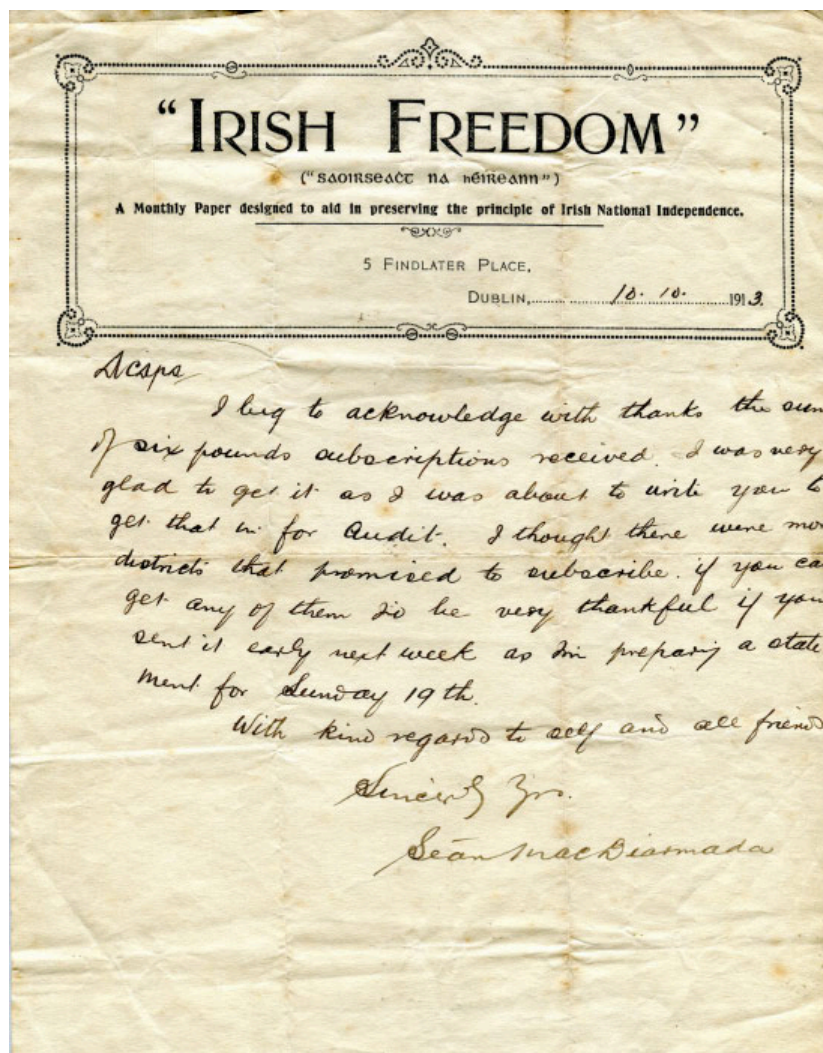 “IRISH FREEDOM”
(“SAOIRSEAĊT NA hÉIREANN”)
A Monthly Paper designed to aid in preserving the principle of Irish National Independence.
5 FINDLATER PLACE,
DUBLIN, 10. 10. 1913.
A Chara
I beg to acknowledge with thanks the sum
of six pounds subscriptions received. I was very
glad to get it as I was about to write you to
get that in for Audit. I thought there were mor
districts that promised to subscribe. if you ca
get any of them I'd be very thankful if you
sent it early next week as I'm preparing a state
ment for Sunday 19th.
With kind regards to self and all friend
Sincerely Yrs.
Seán Mac Diarmada